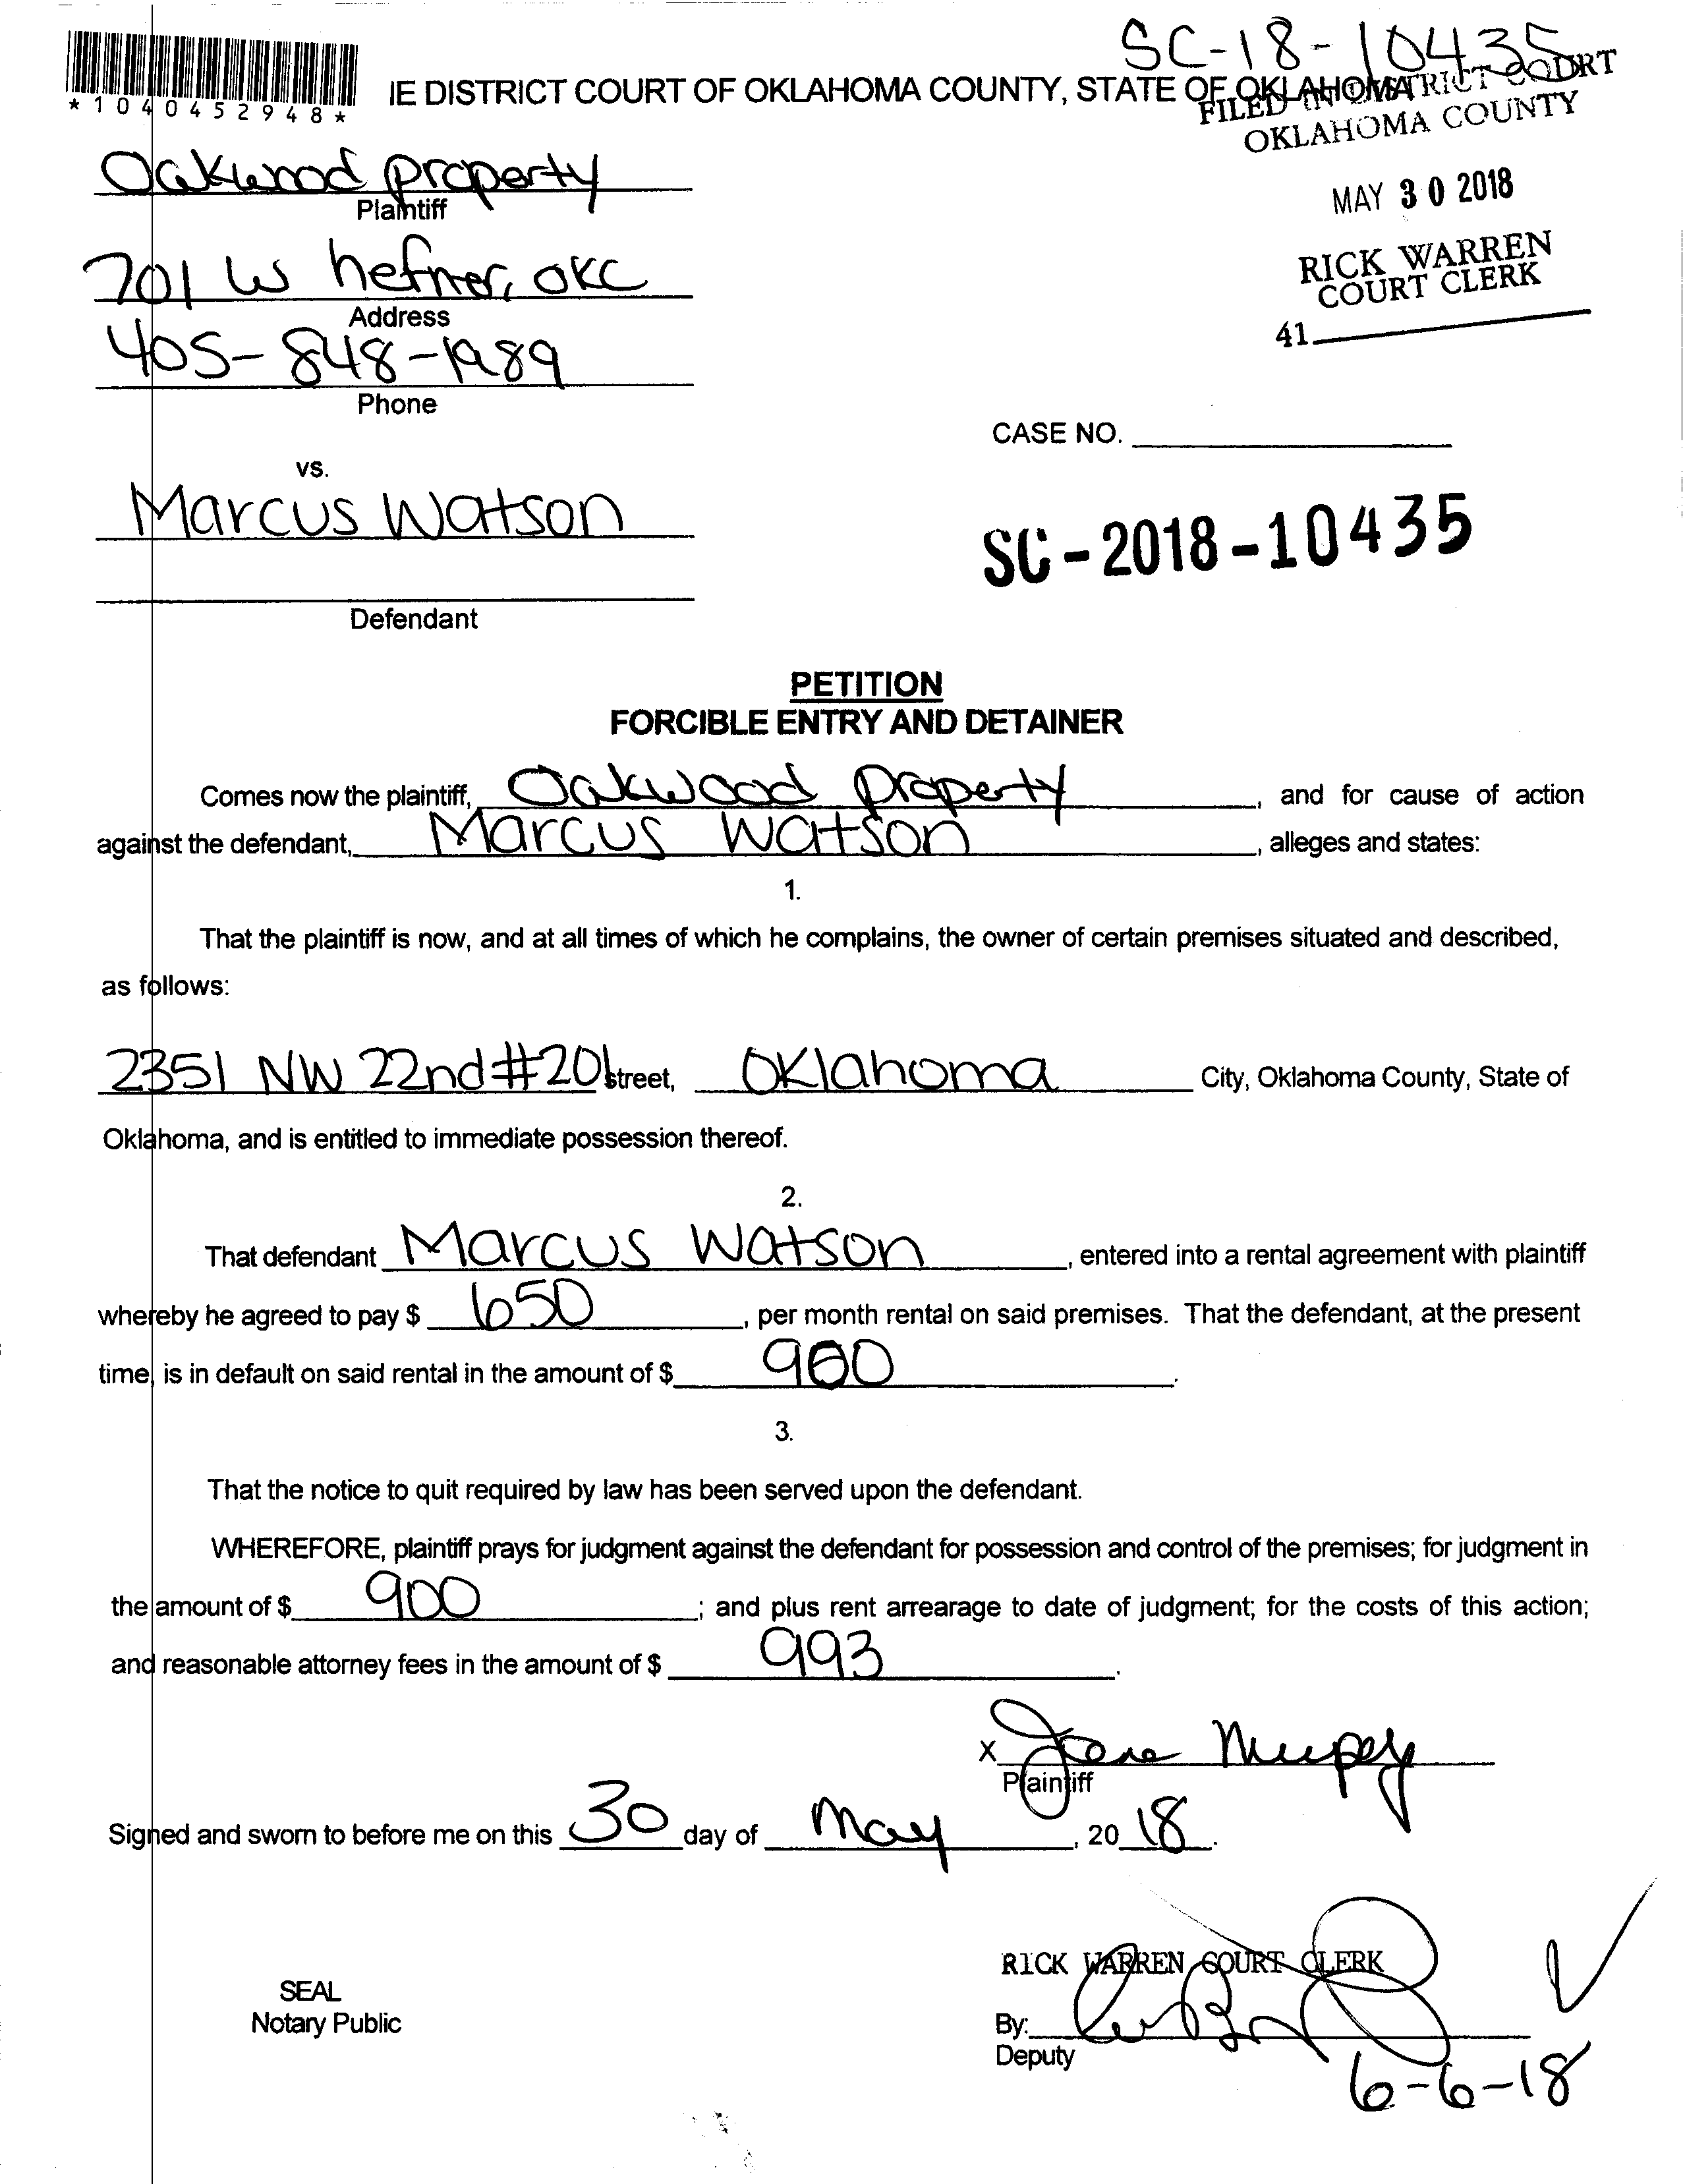 SC-18-10435
*1040452948*
IE DISTRICT COURT OF OKLAHOMA COUNTY, STATE OF OKLAHOMA
FILED IN DISTRICT COURT
OKLAHOMA COUNTY
MAY 30 2018
RICK WARREN
COURT CLERK
41
Oakwood property
Plaintiff
701 W hefner, OKC
Address
405-848-1989
Phone
CASE NO.
vs.
Marcus Watson
SC-2018-10435
Defendant
PETITION
FORCIBLE ENTRY AND DETAINER
Comes now the plaintiff, Oakwood property, and for cause of action
against the defendant, Marcus Watson, alleges and states:
1.
That the plaintiff is now, and at all times of which he complains, the owner of certain premises situated and described,
as follows:
2351 NW 22nd #201 street, Oklahoma City, Oklahoma County, State of
Oklahoma, and is entitled to immediate possession thereof.
2.
That defendant Marcus Watson, entered into a rental agreement with plaintiff
whereby he agreed to pay $ 650, per month rental on said premises. That the defendant, at the present
time, is in default on said rental in the amount of $ 900.
3.
That the notice to quit required by law has been served upon the defendant.
WHEREFORE, plaintiff prays for judgment against the defendant for possession and control of the premises; for judgment in
the amount of $ 900; and plus rent arrearage to date of judgment; for the costs of this action;
and reasonable attorney fees in the amount of $ 993.
x
Plaintiff
Signed and sworn to before me on this 30 day of May, 20 18.
RICK WARREN COURT CLERK
SEAL
Notary Public
By:
Deputy
6-6-18